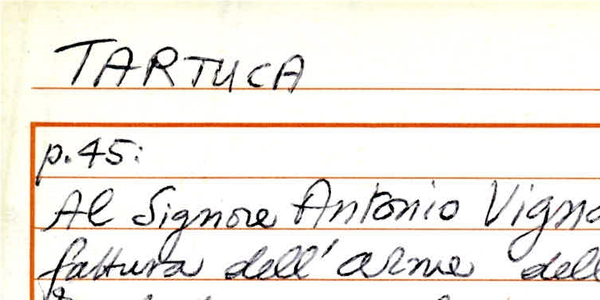 TARTUCA
p.45:
Al Signore Antonio Vigna
fattura dell'arme dell